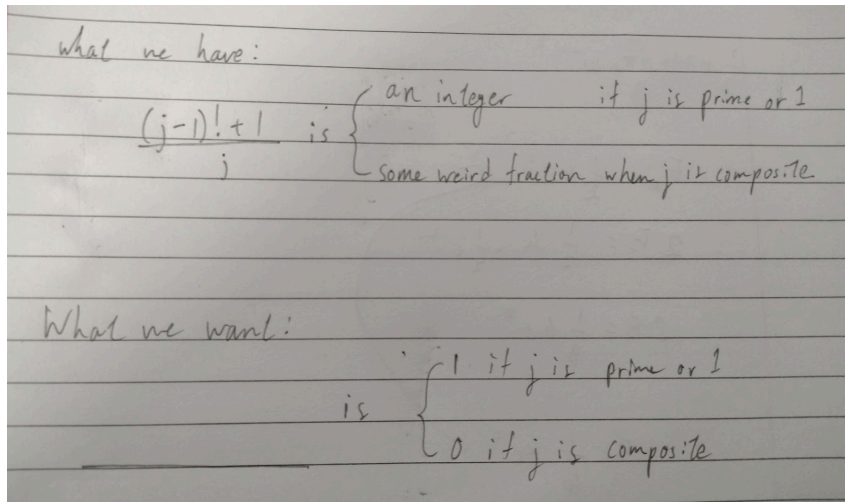 What we have:
(j-1)!+1 is { an integer if j is prime or 1
j
some weird fraction when j is composite
What we want:
is { 1 if j is prime or 1
0 if j is composite